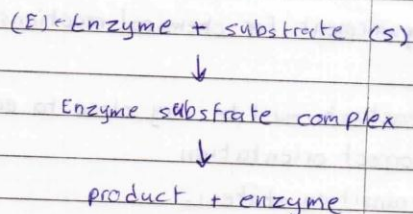 (E) - Enzyme + substrate (s)
↓
Enzyme substrate complex
↓
product + enzyme